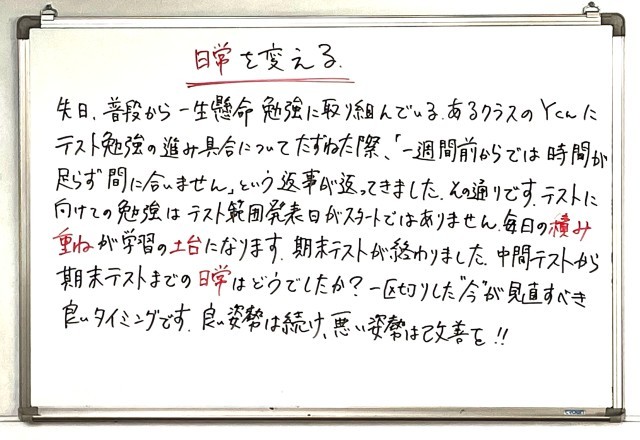 日常を変える.
先日、普段から一生懸命勉強に取り組んでいる、あるクラスのYくんに
テスト勉強の進み具合についてたずねた際、「一週間前からでは時間が
足らず間に合いません」という返事が返ってきました。その通りです。テストに
向けての勉強はテスト範囲発表日がスタートではありません。毎日の積み
重ねが学習の土台になります。期末テストが終わりました。中間テストから
期末テストまでの日常はどうでしたか？一区切りした"今"が見直すべき
良いタイミングです。良い姿勢は続け、悪い姿勢は改善を!!